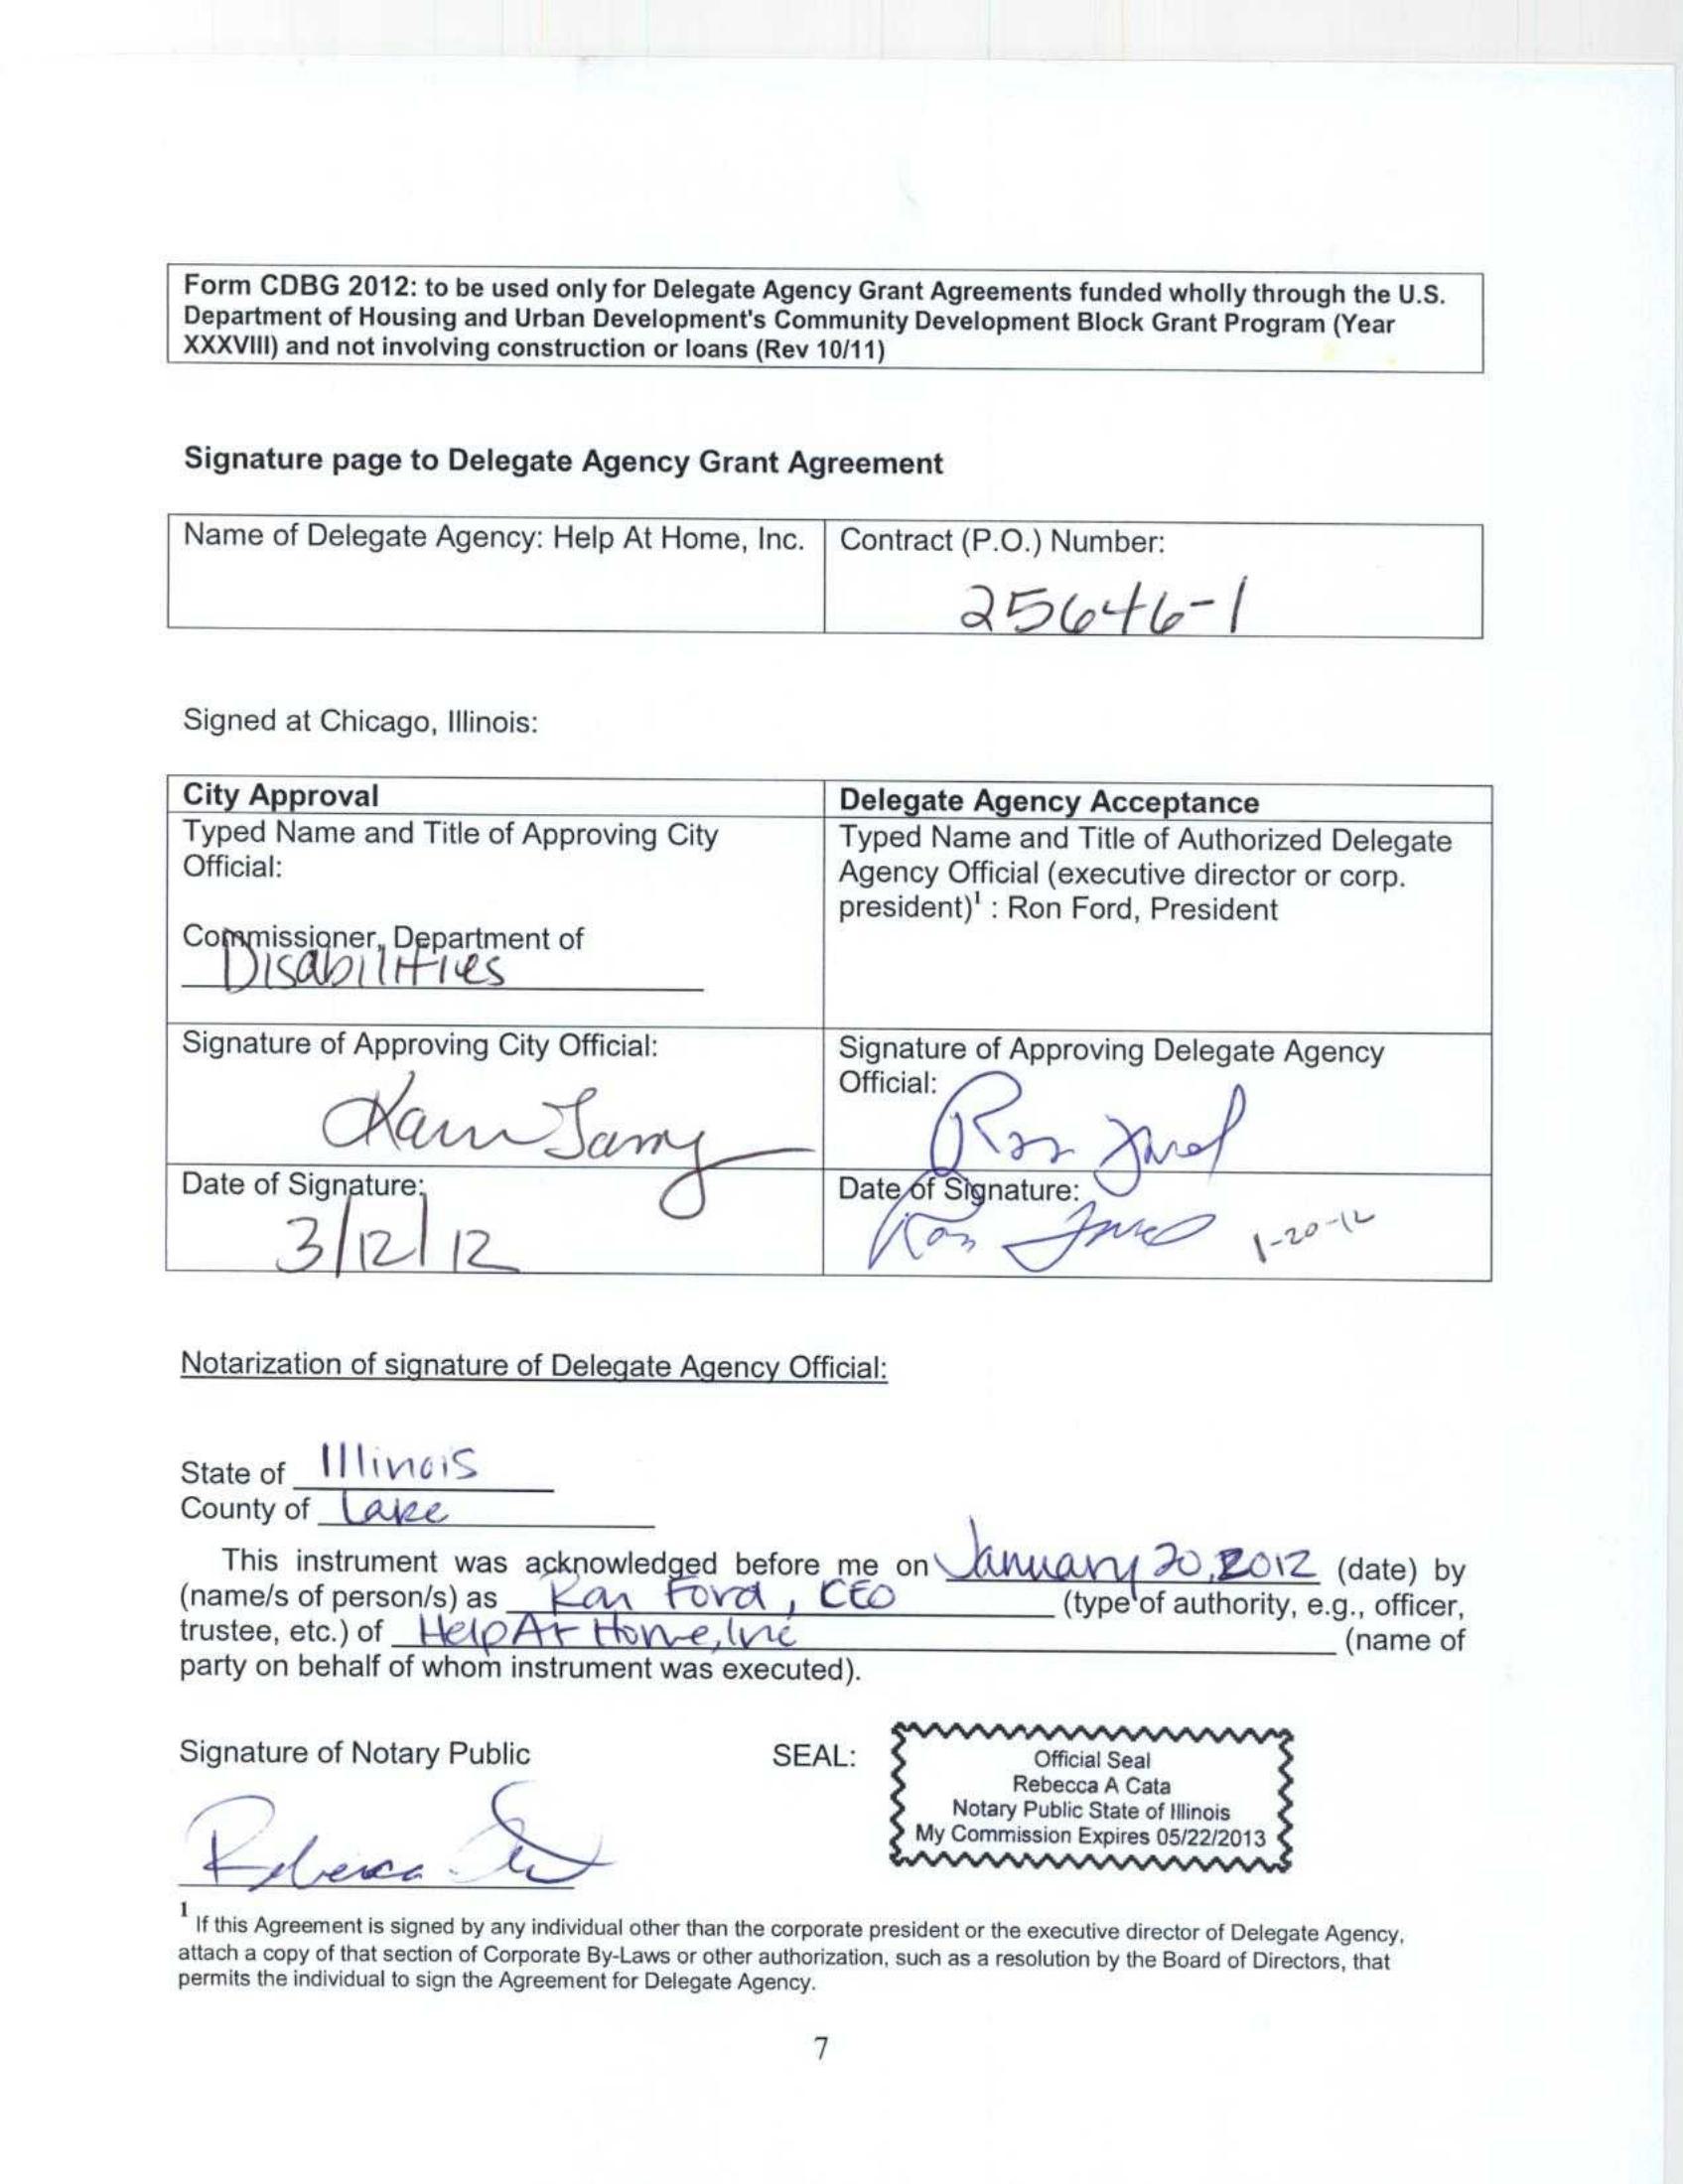 Form CDBG 2012: to be used only for Delegate Agency Grant Agreements funded wholly through the U.S.
Department of Housing and Urban Development's Community Development Block Grant Program (Year
XXXVIII) and not involving construction or loans (Rev 10/11)
Signature page to Delegate Agency Grant Agreement
Name of Delegate Agency: Help At Home, Inc.
Contract (P.O.) Number:
25646-1
Signed at Chicago, Illinois:
City Approval
Typed Name and Title of Approving City
Official:
Commissioner, Department of
Disabilities
Delegate Agency Acceptance
Typed Name and Title of Authorized Delegate
Agency Official (executive director or corp.
president)¹ : Ron Ford, President
Signature of Approving City Official:
Signature of Approving Delegate Agency
Official:
Ron Ford
Date of Signature:
3/12/12
Date of Signature:
Ron Ford 1-20-12
Notarization of signature of Delegate Agency Official:
State of Illinois
County of Lake
This instrument was acknowledged before me on January 20, 2012 (date) by
(name/s of person/s) as Ron Ford, CEO (type of authority, e.g., officer,
trustee, etc.) of Help At Home, Inc (name of
party on behalf of whom instrument was executed).
Signature of Notary Public
Rebecca
SEAL:
Official Seal
Rebecca A Cata
Notary Public State of Illinois
My Commission Expires 05/22/2013
1 If this Agreement is signed by any individual other than the corporate president or the executive director of Delegate Agency,
attach a copy of that section of Corporate By-Laws or other authorization, such as a resolution by the Board of Directors, that
permits the individual to sign the Agreement for Delegate Agency.
7